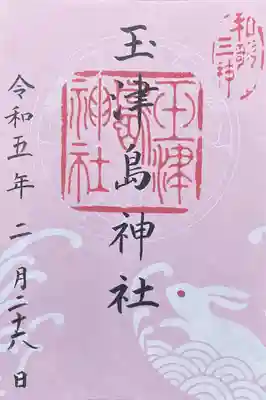 和歌三神
玉津島神社
玉津島神社
令和五年二月二十六日